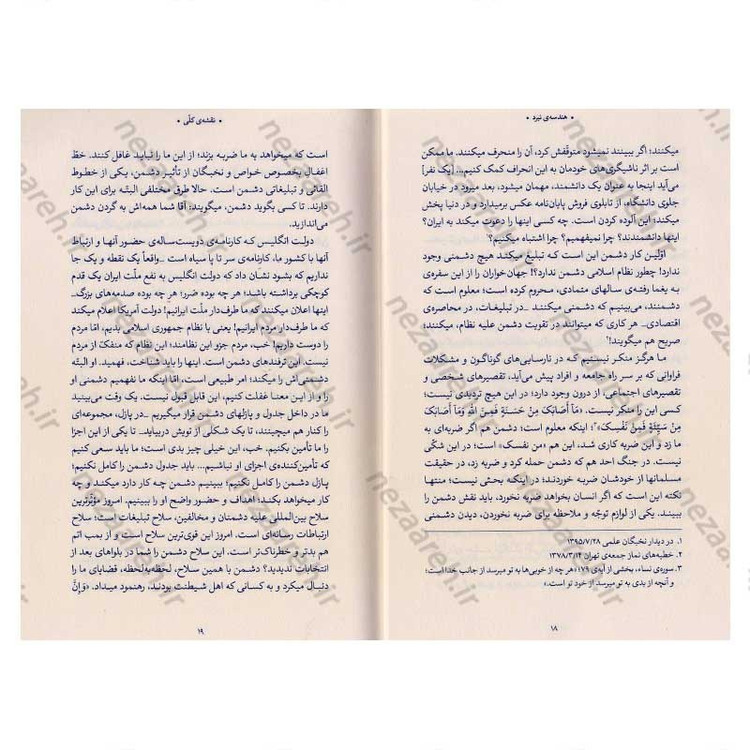 • هندسه‌ی نبرد •
میکنند؛ اگر ببینند نمیشود متوقّفش کرد، آن را منحرف میکنند. ما ممکن
است بر اثر ناشیگری‌های خودمان به این انحراف کمک کنیم... [یک نفر]
می‌آید اینجا به عنوان یک دانشمند، مهمان میشود، بعد میرود در خیابان
جلوی دانشگاه، از تابلوی فروش پایان‌نامه عکس برمیدارد و در دنیا پخش
میکند؛ این آلوده کردن است. چه کسی اینها را دعوت میکند به ایران؟
اینها دانشمندند؟ چرا نمیفهمیم؟ چرا اشتباه میکنیم؟
اوّلین کار دشمن این است که تبلیغ میکند هیچ دشمنی وجود
ندارد! چطور نظام اسلامی دشمن ندارد؟! جهان‌خواران از این سفره‌ی
به یغما رفته‌ی سالهای متمادی، محروم شده‌اند؛ معلوم است که
دشمنند، می‌بینیم که دشمنی میکنند _در تبلیغات، در محاصره‌ی
اقتصادی_ هر کاری که میتوانند در تقویت دشمن علیه نظام، میکنند؛
صریح هم میگویند!
ما هرگز منکر نیستیم که در نارسایی‌های گوناگون و مشکلات
فراوانی که بر سر راه جامعه و افراد پیش می‌آید، تقصیرهای شخصی و
تقصیرهای اجتماعی، از درون وجود دارد؛ در این هیچ تردیدی نیست؛
کسی این را منکر نیست. «مَا أَصَابَكَ مِنْ حَسَنَةٍ فَمِنَ اللَّهِ وَمَا أَصَابَكَ
مِنْ سَيِّئَةٍ فَمِنْ نَفْسِكَ»؛ اینکه معلوم است؛ دشمن هم اگر ضربه‌ای به
ما زد و این ضربه کاری شد، این هم «من نفسک» است؛ در این شکّی
نیست. در جنگ احد هم که دشمن حمله کرد و ضربه زد، در حقیقت
مسلمانها از خودشان ضربه خوردند؛ در اینکه بحثی نیست؛ منتها
نکته این است که اگر انسان بخواهد ضربه نخورد، باید نقش دشمن را
ببیند. یکی از لوازم توجّه و ملاحظه برای ضربه نخوردن، دیدن دشمنی
۱. در دیدار نخبگان علمی ۱۳۹۵/۷/۲۸
۲. خطبه‌های نماز جمعه‌ی تهران ۱۳۷۸/۳/۱۴
۳. سوره‌ی نساء، بخشی از آیه‌ی ۷۹؛ «هر چه از خوبی‌ها به تو میرسد از جانب خدا است؛
و آنچه از بدی به تو میرسد از خود تو است.»
۱۸
• نقشه‌ی کلّی •
است که میخواهد به ما ضربه بزند؛ از این ما را نباید غافل کنند. خطّ
اغفال بخصوص خواص و نخبگان از تأثیر دشمن، یکی از خطوط
القائی و تبلیغاتی دشمن است. حالا طرق مختلفی البتّه برای این کار
دارند. تا کسی بگوید دشمن، میگویند: آقا شما همه‌اش به گردن دشمن
می‌اندازید.
دولت انگلیس که کارنامه‌ی دویست‌ساله‌ی حضور آنها و ارتباط
آنها با کشور ما، کارنامه‌ی سر تا پا سیاه است _واقعاً یک نقطه و یک جا
نداریم که بشود نشان داد که دولت انگلیس به نفع ملّت ایران یک قدم
کوچکی برداشته باشد؛ هر چه بوده ضرر؛ هر چه بوده صدمه‌های بزرگ_
اینها اعلان میکنند که ما طرف‌دار ملّت ایرانیم! دولت آمریکا اعلام میکند
که ما طرف‌دار مردم ایرانیم! یعنی با نظام جمهوری اسلامی بدیم، امّا مردم
را دوست داریم! خب، مردم جزو این نظامند؛ این نظام که منفکّ از مردم
نیست. این ترفندهای دشمن است. اینها را باید شناخت، فهمید. او البتّه
دشمنی‌اش را میکند؛ امر طبیعی است، امّا اینکه ما نفهمیم دشمنی او
را و از این معنا غفلت کنیم، این قابل قبول نیست. یک وقت می‌بینید
ما در داخل جدول و پازلهای دشمن قرار میگیریم _در پازل، مجموعه‌ای
را کنار هم میچینند، تا یک شکلی از تویش دربیاید_ تا یکی از این اجزا
را ما تأمین بکنیم، خب، این خیلی چیز بدی است؛ ما باید سعی کنیم
که تأمین‌کننده‌ی اجزای او نباشیم... باید جدول دشمن را کامل نکنیم؛
پازل دشمن را کامل نکنیم؛ ببینیم دشمن چه کار دارد میکند و چه
کار میخواهد بکند؛ اهداف و حضور واضح او را ببینیم. امروز مؤثّرترین
سلاح بین‌المللی علیه دشمنان و مخالفین، سلاح تبلیغات است؛ سلاح
ارتباطات رسانه‌ای است. امروز این قوی‌ترین سلاح است و از بمب اتم
هم بدتر و خطرناک‌تر است. این سلاح دشمن را شما در بلواهای بعد از
انتخابات ندیدید؟ دشمن با همین سلاح، لحظه‌به‌لحظه، قضایای ما را
دنبال میکرد و به کسانی که اهل شیطنت بودند، رهنمود میداد. «وَإِنَّ
۱۹
nezaareh.ir